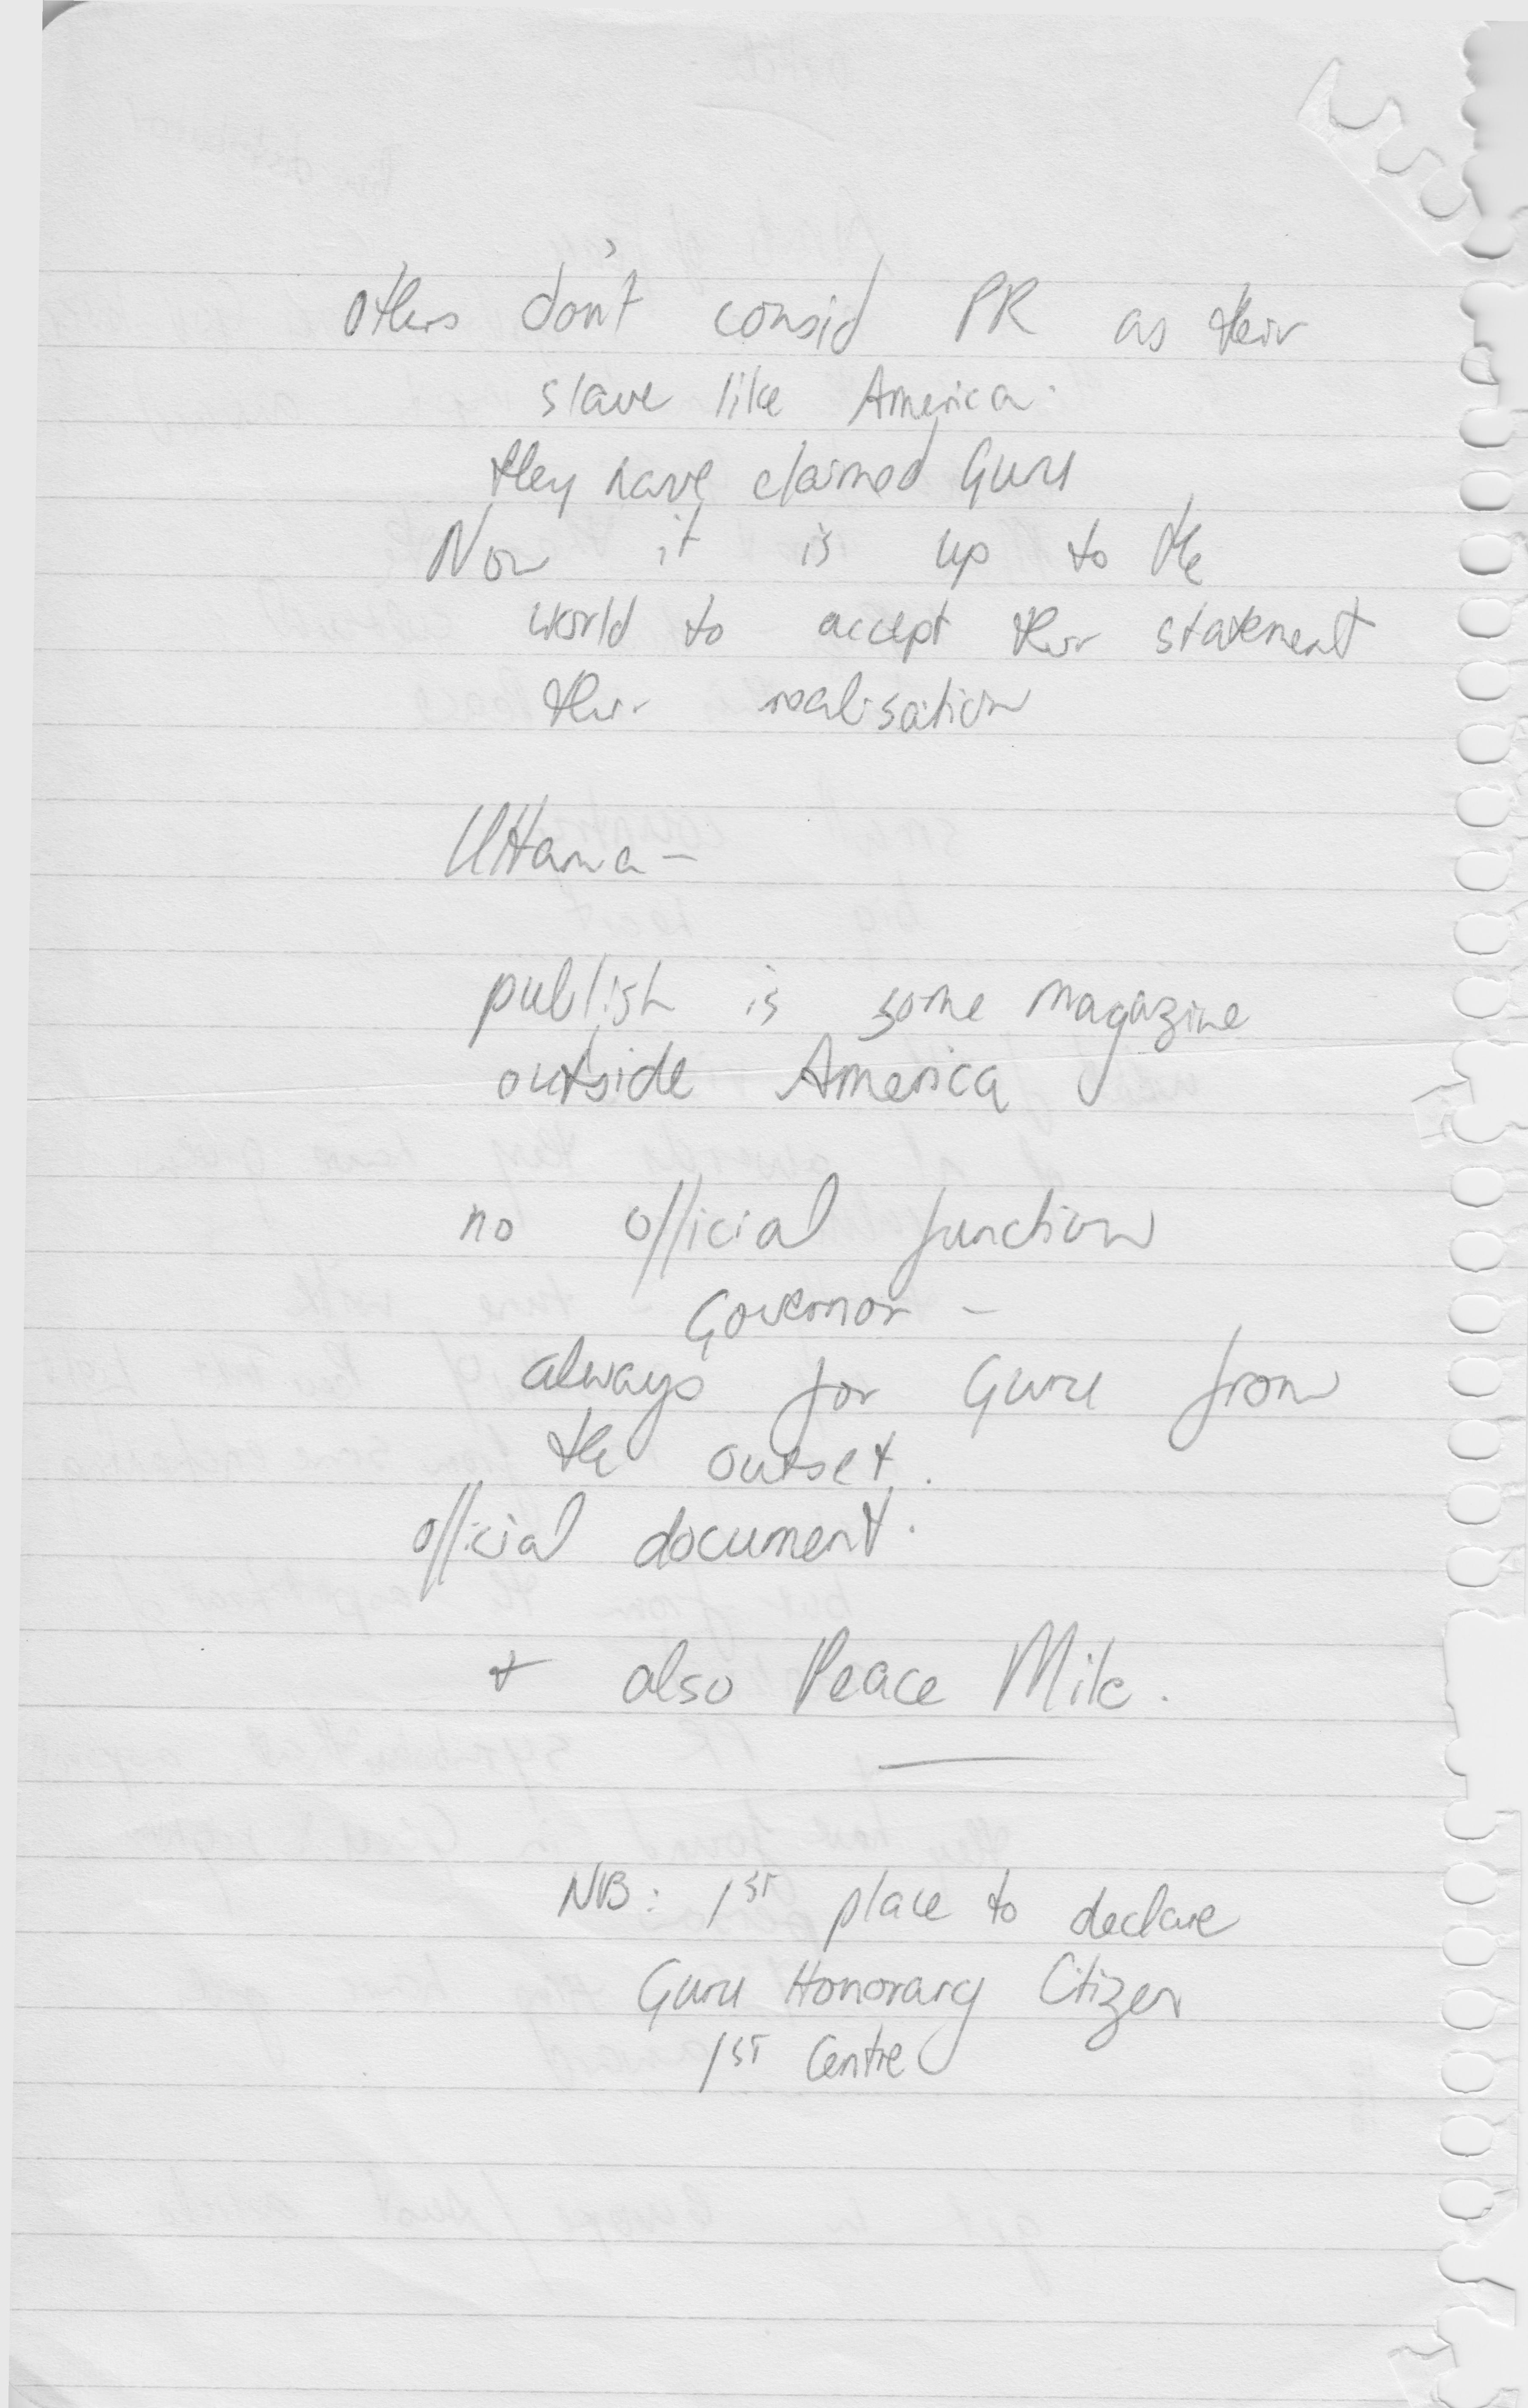 others don't consid PR as their
slave like America.
they have claimed Guru
Now it is up to the
world to accept their statement
their realisation
Uttama –
publish is some magazine
outside America
no official function
Governor –
always for Guru from
the outset.
official document.
+ also Peace Mile.
NB: 1ST place to declare
Guru Honorary Citizen
1ST Centre